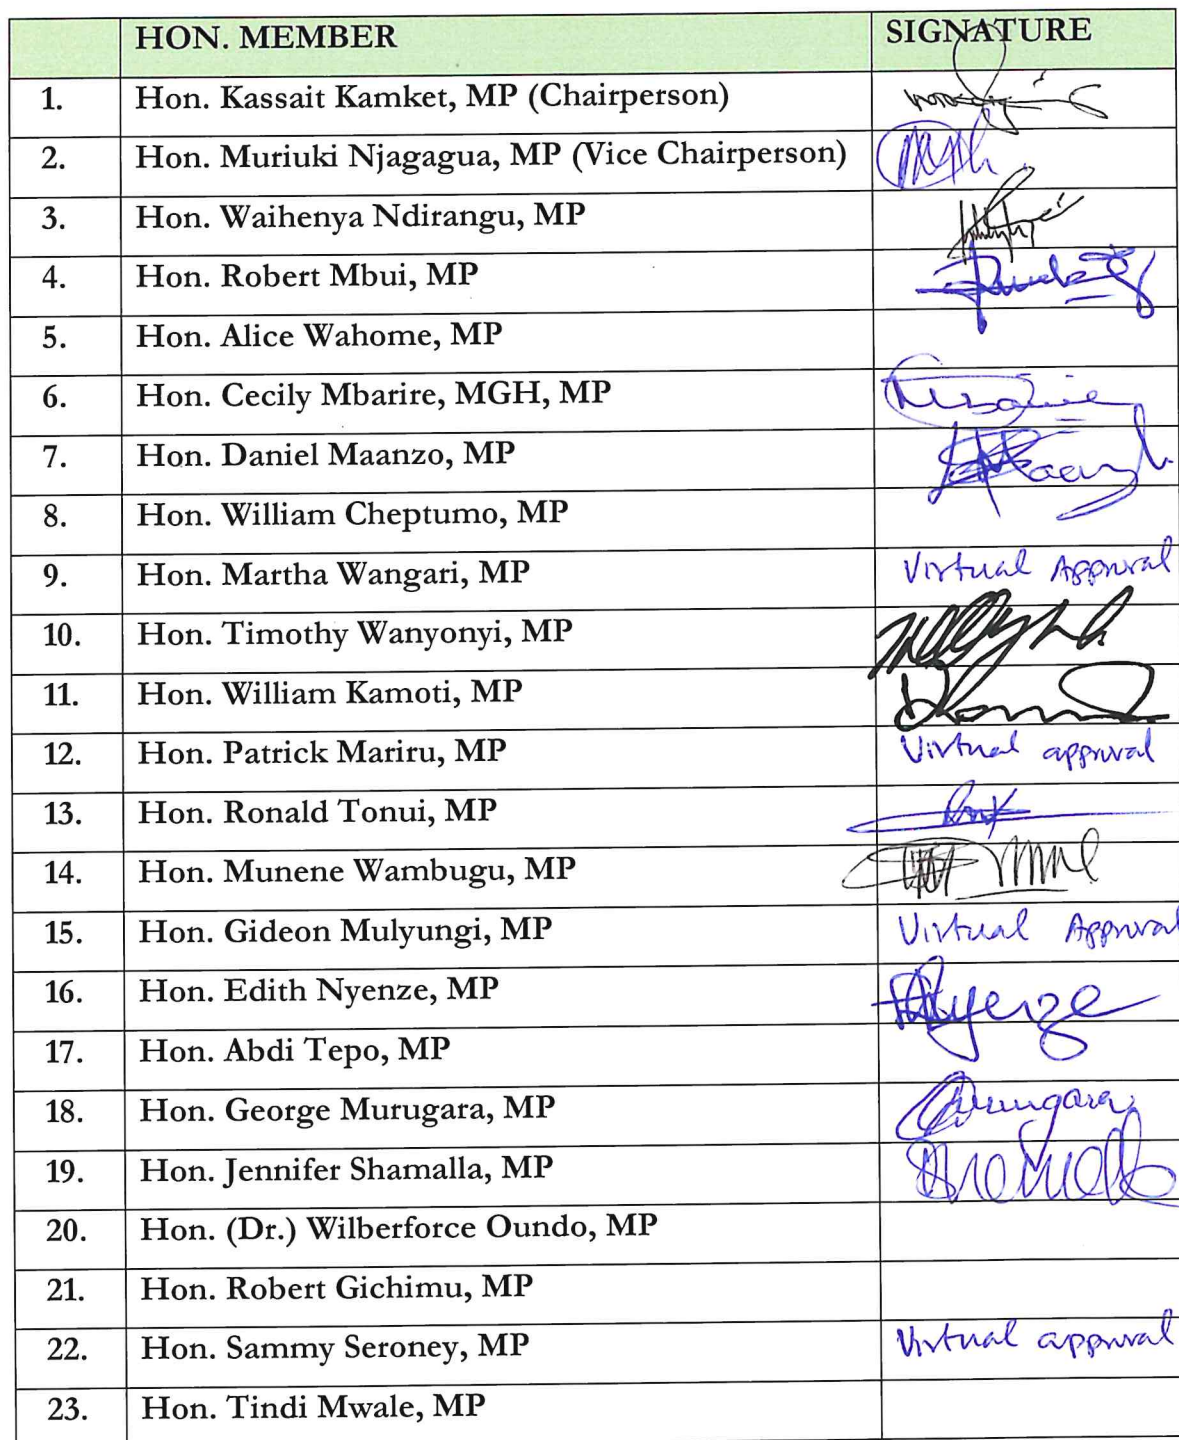 HON. MEMBER SIGNATURE
1. Hon. Kassait Kamket, MP (Chairperson)
2. Hon. Muriuki Njagagua, MP (Vice Chairperson)
3. Hon. Waihenya Ndirangu, MP
4. Hon. Robert Mbui, MP
5. Hon. Alice Wahome, MP
6. Hon. Cecily Mbarire, MGH, MP
7. Hon. Daniel Maanzo, MP
8. Hon. William Cheptumo, MP
9. Hon. Martha Wangari, MP Virtual Approval
10. Hon. Timothy Wanyonyi, MP
11. Hon. William Kamoti, MP
12. Hon. Patrick Mariru, MP Virtual approval
13. Hon. Ronald Tonui, MP
14. Hon. Munene Wambugu, MP
15. Hon. Gideon Mulyungi, MP Virtual Approval
16. Hon. Edith Nyenze, MP
17. Hon. Abdi Tepo, MP
18. Hon. George Murugara, MP
19. Hon. Jennifer Shamalla, MP
20. Hon. (Dr.) Wilberforce Oundo, MP
21. Hon. Robert Gichimu, MP
22. Hon. Sammy Seroney, MP Virtual approval
23. Hon. Tindi Mwale, MP